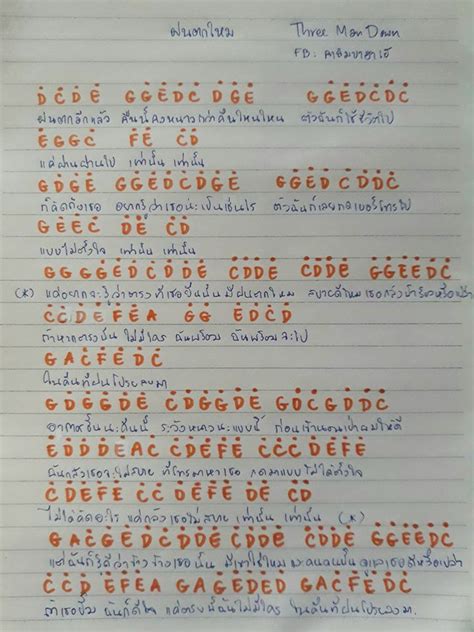 ฝนตกไหม Three Man Down
FB:
D C D E G G E D C D G E G G E D C D C
ฝนตกอีกแล้ว คืนนี้คงหนาวกว่าคืนไหนไหน ตัวฉันก็ใช้ชีวิตไป
E G G C F E C D
แค่ผ่านผ่านไป เท่านั้น เท่านั้น
G D G E G G E D C D G E G G E D C D D C
ก็คิดถึงเธอ อยากรู้ว่าเธอน่ะเป็นเช่นไร ตัวฉันก็เลยกดเบอร์โทรไป
G E E C D E C D
แบบไม่ตั้งใจ เท่านั้น เท่านั้น
G G G G E D C D D E C D D E C D D E G G E E D C
(*) แค่อยากจะรู้ว่าตรงที่เธอยืนนั้นมีฝนตกไหม สบายดีไหม เธอกลัวฟ้าร้องหรือเปล่า
C C D E F E A G G E D C D
ถ้าหากตรงนั้น ไม่มีใคร ฉันพร้อม ฉันพร้อมจะไป
G A C F E D C
ในคืนที่ฝนโปรยลงมา
G D G G D E C D G G D E G D C G D D C
อากาศเย็นนะคืนนี้ ระวังหนาวนะแบบนี้ ก่อนเข้านอนเป่าผมให้ดี
E D D D E A C C D E F E C C C D E F E
ฉันกลัวเธอจะไม่สบาย ที่โทรมาหาเธอ กดมาแบบไม่ได้ตั้งใจ
C D E F E C C D E F E D E C D
ไม่ได้คิดอะไร แค่กลัวเธอไม่สบาย เท่านั้น เท่านั้น (*)
G A C G E D C D D E C D D E C D D E G G E E D C
แต่ฉันก็รู้ดีว่าข้างข้างเธอนั้น มีเขาใช่ไหม และคนคนนั้น ดูแลเธอดีหรือเปล่า
C C D E F E A G A G E D E D G A C F E D C
ถ้าเธอยิ้ม ฉันก็ดีใจ แต่ตรงนี้ฉันไม่มีใคร ในคืนที่ฝนโปรยลงมา.